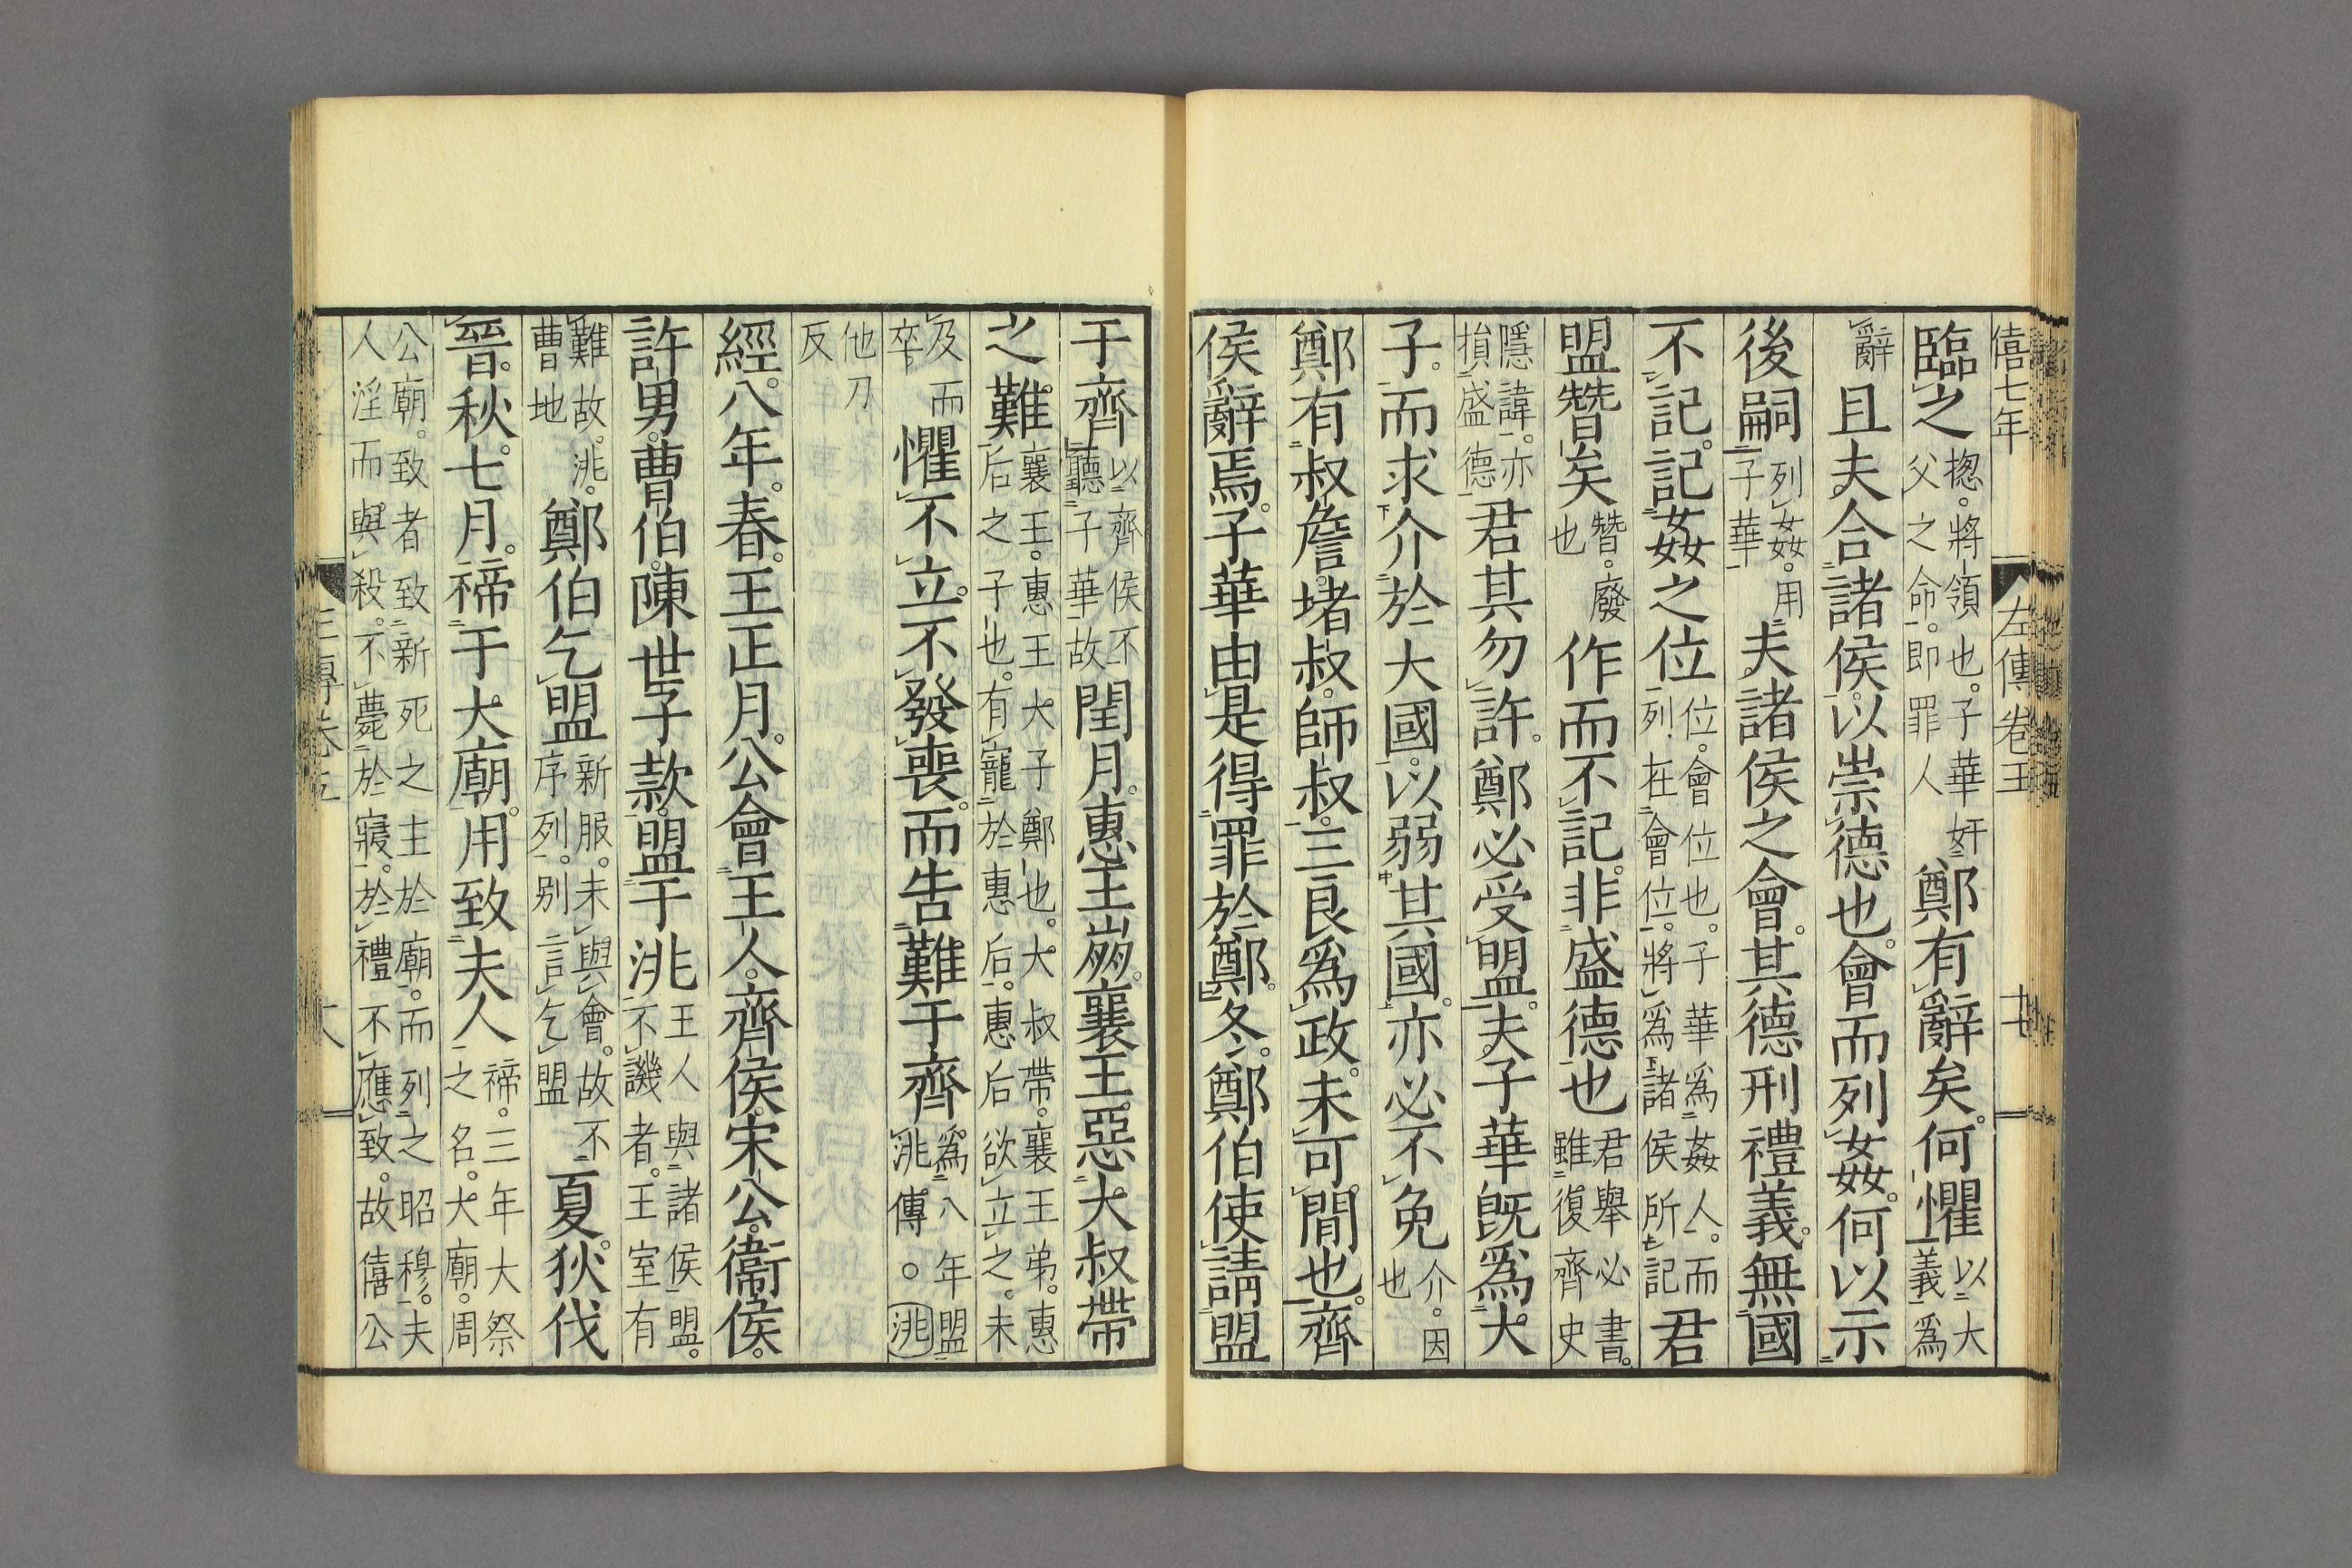 僖七年 左傳卷五 十七
臨之揔。將領也。子華奸父之命。即罪人鄭有辭矣。何懼以大義爲
辭且夫合諸侯以崇德也。會而列姦。何以示
後嗣列姦。用子華夫諸侯之會。其德刑禮義。無國
不記。記姦之位位。會位也。子華爲姦人。而列在會位。將爲諸侯所記君
盟替矣替。廢也作而不記。非盛德也君舉必書。雖復齊史
隱諱。亦損盛德君其勿許。鄭必受盟。夫子華旣爲大
子。而求介於大國。以弱其國。亦必不免介。因也
鄭有叔詹。堵叔。師叔。三良爲政。未可間也。齊
侯辭焉。子華由是得罪於鄭。冬。鄭伯使請盟
于齊以齊侯不聽子華故閏月。惠王崩。襄王惡大叔帶
之難。襄王。惠王大子鄭也。大叔帶。襄王弟。惠后之子也。有寵於惠后。惠后欲立之。未
及而卒懼不立。不發喪。而告難于齊爲八年盟洮傳。。洮
他刀反
經。八年。春。王正月。公會王人。齊侯。宋公。衞侯。
許男。曹伯。陳世子款。盟于洮王人與諸侯盟。不譏者。王室有
難故。洮。曹地鄭伯乞盟新服。未與會。故不序列。別言乞盟夏。狄伐
晉。秋。七月。禘于大廟。用致夫人禘。三年大祭之名。大廟。周
公廟。致者致新死之主於廟。而列之昭穆。夫人淫而與殺。不薨於寢。於禮不應致。故僖公